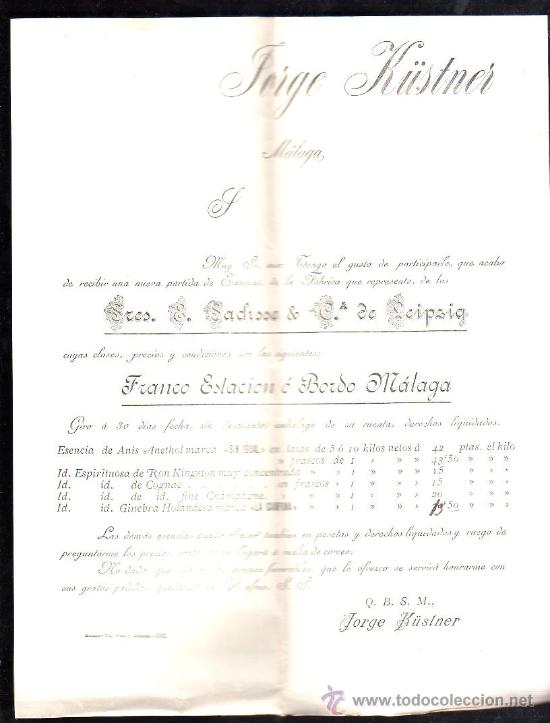 Jorge Küstner
Málaga,
S
Muy Sr. mio: Tengo el gusto de participarle, que acabo
de recibir una nueva partida de Esencias de la Fábrica que represento, de los
Sres. E. Sachsse & C.ª de Leipzig
cuyas clases, precios y condiciones son las siguientes:
Franco Estacion ó Bordo Málaga
Giro á 30 dias fecha, sin descuento embalage de su cuenta, derechos liquidados.
Esencia de Anis Anethol marca «SIN IGUAL» en latas de 5 ó 10 kilos netos á 42 ptas. el kilo
» frascos de 1 » » » 42'50 » » »
Id. Espirituosa de Ron Kingston muy concentrada » 1 » » » 15 » » »
Id. id. de Cognac en frascos » 1 » » » 15 » » »
Id. id. de id. fine Champagne » 1 » » » 20 » » »
Id. id. Ginebra Holandesa marca » 1 » » » 19'50 » » »
Las demás esencias puedo ofrecer tambien en pesetas y derechos liquidados y ruego de
preguntarme los precios á vuelta de correo.
No dudo, que precios favorables, que le ofrezco se servirá honrarme con
sus gratos S. S.
Q. B. S. M.,
Jorge Küstner
todocoleccion
www.todocoleccion.net